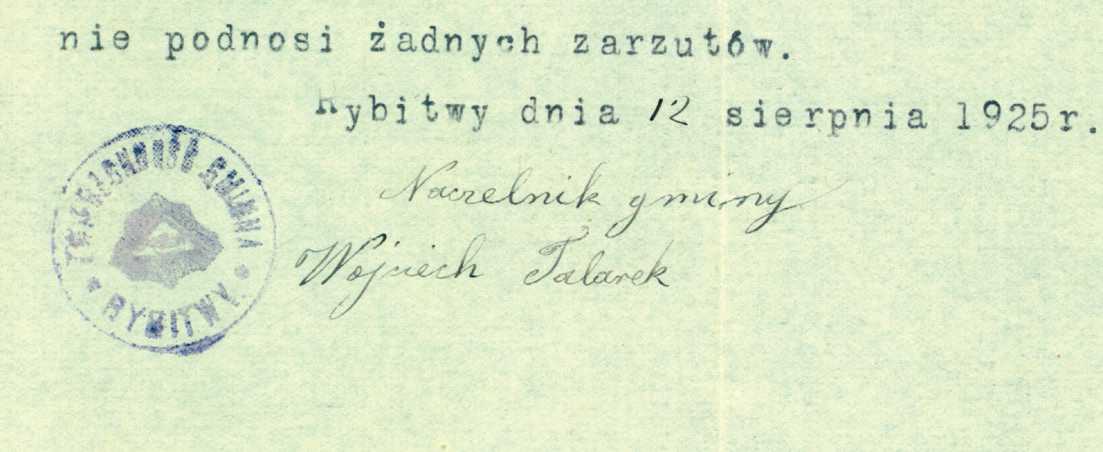 nie podnosi żadnych zarzutów.
Rybitwy dnia 12 sierpnia 1925r.
Naczelnik gminy
Wojciech Talarek
ZWIERZCHNOŚĆ GMINNA
* RYBITWY *